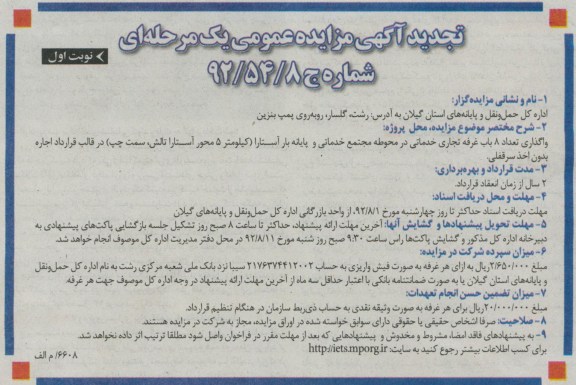 تجدید آگهی مزایده عمومی یک مرحله‌ای
شماره ج ۹۲/۵۴/۸
نوبت اول
۱- نام و نشانی مزایده‌گزار:
اداره کل حمل‌ونقل و پایانه‌های استان گیلان به آدرس: رشت، گلسار، روبه‌روی پمپ بنزین
۲- شرح مختصر موضوع مزایده، محل پروژه:
واگذاری تعداد ۸ باب غرفه تجاری خدماتی در محوطه مجتمع خدماتی و پایانه بار آستارا (کیلومتر ۵ محور آستارا تالش، سمت چپ) در قالب قرارداد اجاره
بدون اخذ سرقفلی.
۳- مدت قرارداد و بهره‌برداری:
۲ سال از زمان انعقاد قرارداد.
۴- مهلت و محل دریافت اسناد:
مهلت دریافت اسناد حداکثر تا روز چهارشنبه مورخ ۹۲/۸/۱، از واحد بازرگانی اداره کل حمل‌ونقل و پایانه‌های گیلان
۵- مهلت تحویل پیشنهادها و گشایش آنها: آخرین مهلت ارائه پیشنهاد، حداکثر تا ساعت ۸ صبح روز تشکیل جلسه بازگشایی پاکت‌های پیشنهادی به
دبیرخانه اداره کل مذکور و گشایش پاکت‌ها راس ساعت ۹:۳۰ صبح روز شنبه مورخ ۹۲/۸/۱۱ در محل دفتر مدیریت اداره کل موصوف انجام خواهد شد.
۶- میزان سپرده شرکت در مزایده:
مبلغ ۲/۶۵۰/۰۰۰ریال به ازای هر غرفه به صورت فیش واریزی به حساب ۲۱۷۶۳۷۴۴۱۲۰۰۲ سیبا نزد بانک ملی شعبه مرکزی رشت به نام اداره کل حمل‌ونقل
و پایانه‌های استان گیلان یا به صورت ضمانتنامه بانکی با اعتبار حداقل سه ماه از آخرین مهلت ارائه پیشنهاد در وجه اداره کل موصوف جهت هر غرفه.
۷- میزان تضمین حسن انجام تعهدات:
مبلغ ۲۰/۰۰۰/۰۰۰ریال برای هر غرفه به صورت وثیقه نقدی به حساب ذی‌ربط سازمان در هنگام تنظیم قرارداد.
۸- صلاحیت: صرفا اشخاص حقیقی یا حقوقی دارای سوابق خواسته شده در اوراق مزایده، مجاز به شرکت در مزایده هستند.
۹- به پیشنهادهای فاقد امضا، مشروط و مخدوش و پیشنهادهایی که بعد از مهلت مقرر در فراخوان واصل شود مطلقا ترتیب اثر داده نخواهد شد.
برای کسب اطلاعات بیشتر رجوع کنید به سایت: http://iets.mporg.ir
۶۶۰۸/م الف